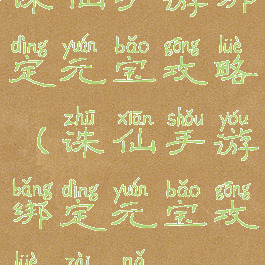 诛仙手游绑
dìng yuán bǎo gōng lüè
定元宝攻略
zhū xiān shǒu yóu
（诛仙手游
bǎng dìng yuán bǎo gōng
绑定元宝攻
lüè zài nǎ